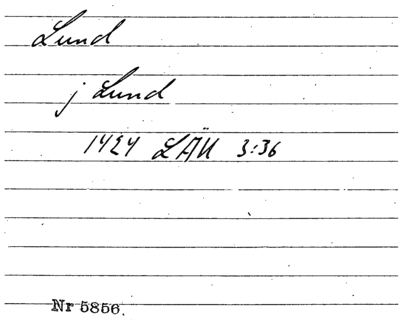 Lund
j Lund
1424 LÄU 3:36
Nr 5856.